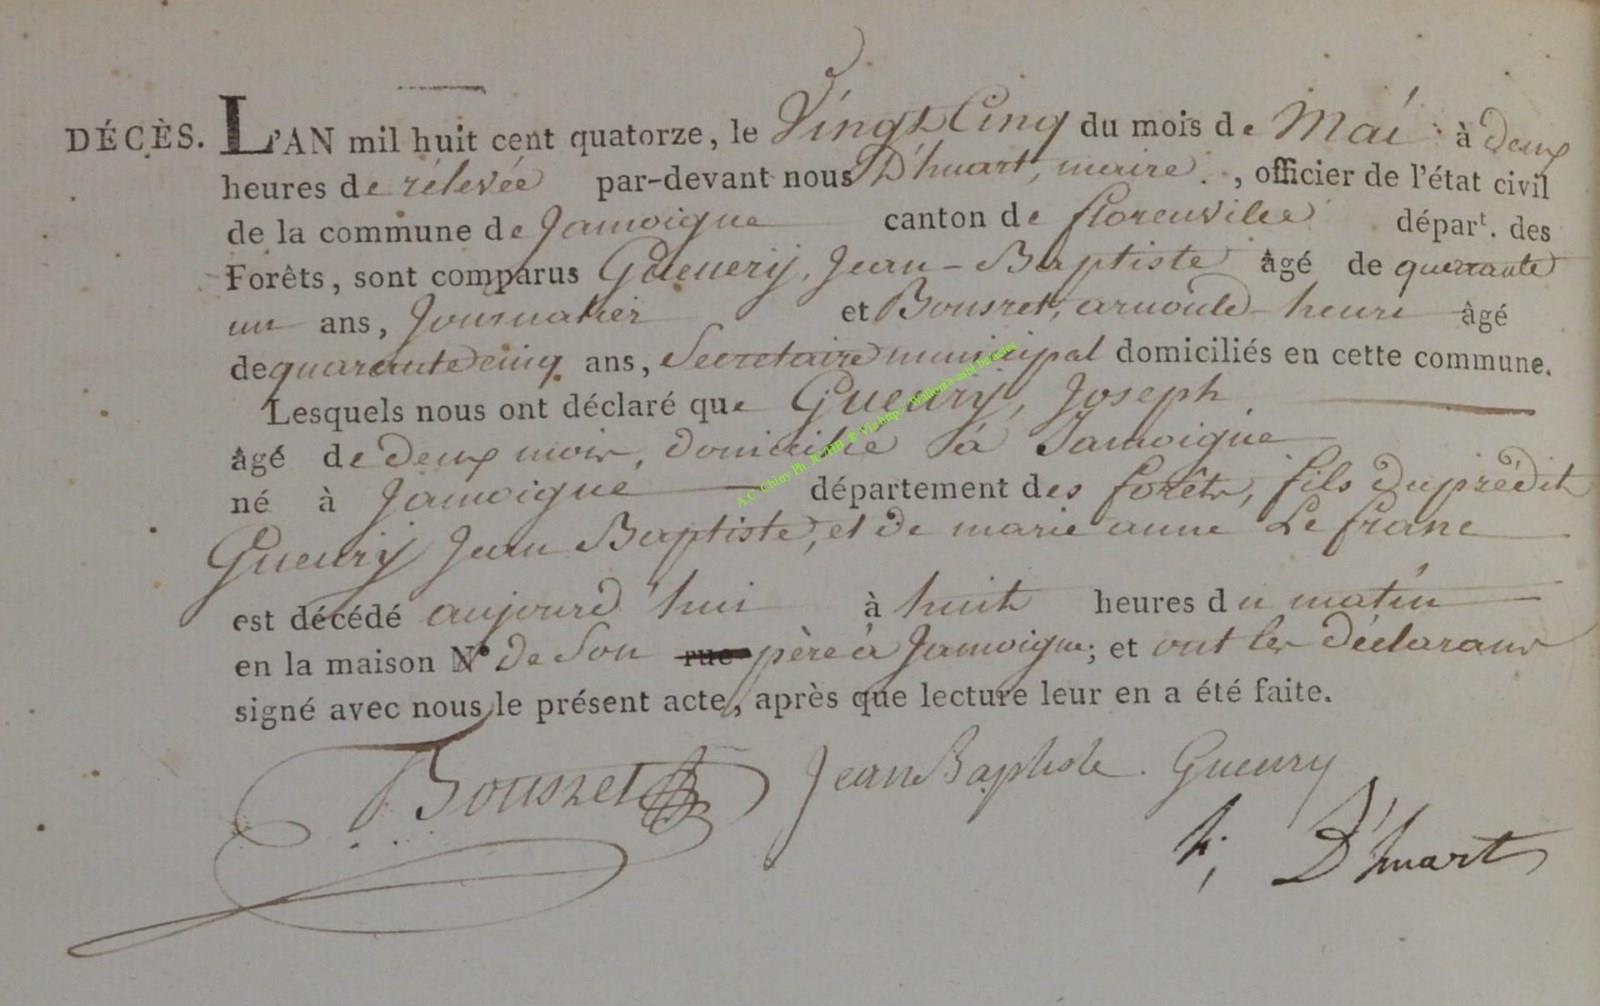 DÉCÈS. L'AN mil huit cent quatorze, le Vingt Cinq du mois de Mai à deux
heures de rélevée par-devant nous D'huart, maire, officier de l'état civil
de la commune de Jamoigne canton de florenville départ. des
Forêts, sont comparus Gueuery, Jean-Baptiste âgé de quarante
un ans, Journalier et Bousret, arnould-henri âgé
de quarante cinq ans, Secretaire municipal domiciliés en cette commune.
Lesquels nous ont déclaré que Gueury, Joseph
âgé de deux mois, domicilié à Jamoigne
né à Jamoigne département des forêts, fils du prédit
Gueury Jean Baptiste, et de marie anne Le franc
est décédé aujourd'hui à huit heures du matin
en la maison N° de Son rue père à Jamoigne; et ont les déclarans
signé avec nous le présent acte, après que lecture leur en a été faite.
Bousret Jean Baptiste Gueury
h, D'huart